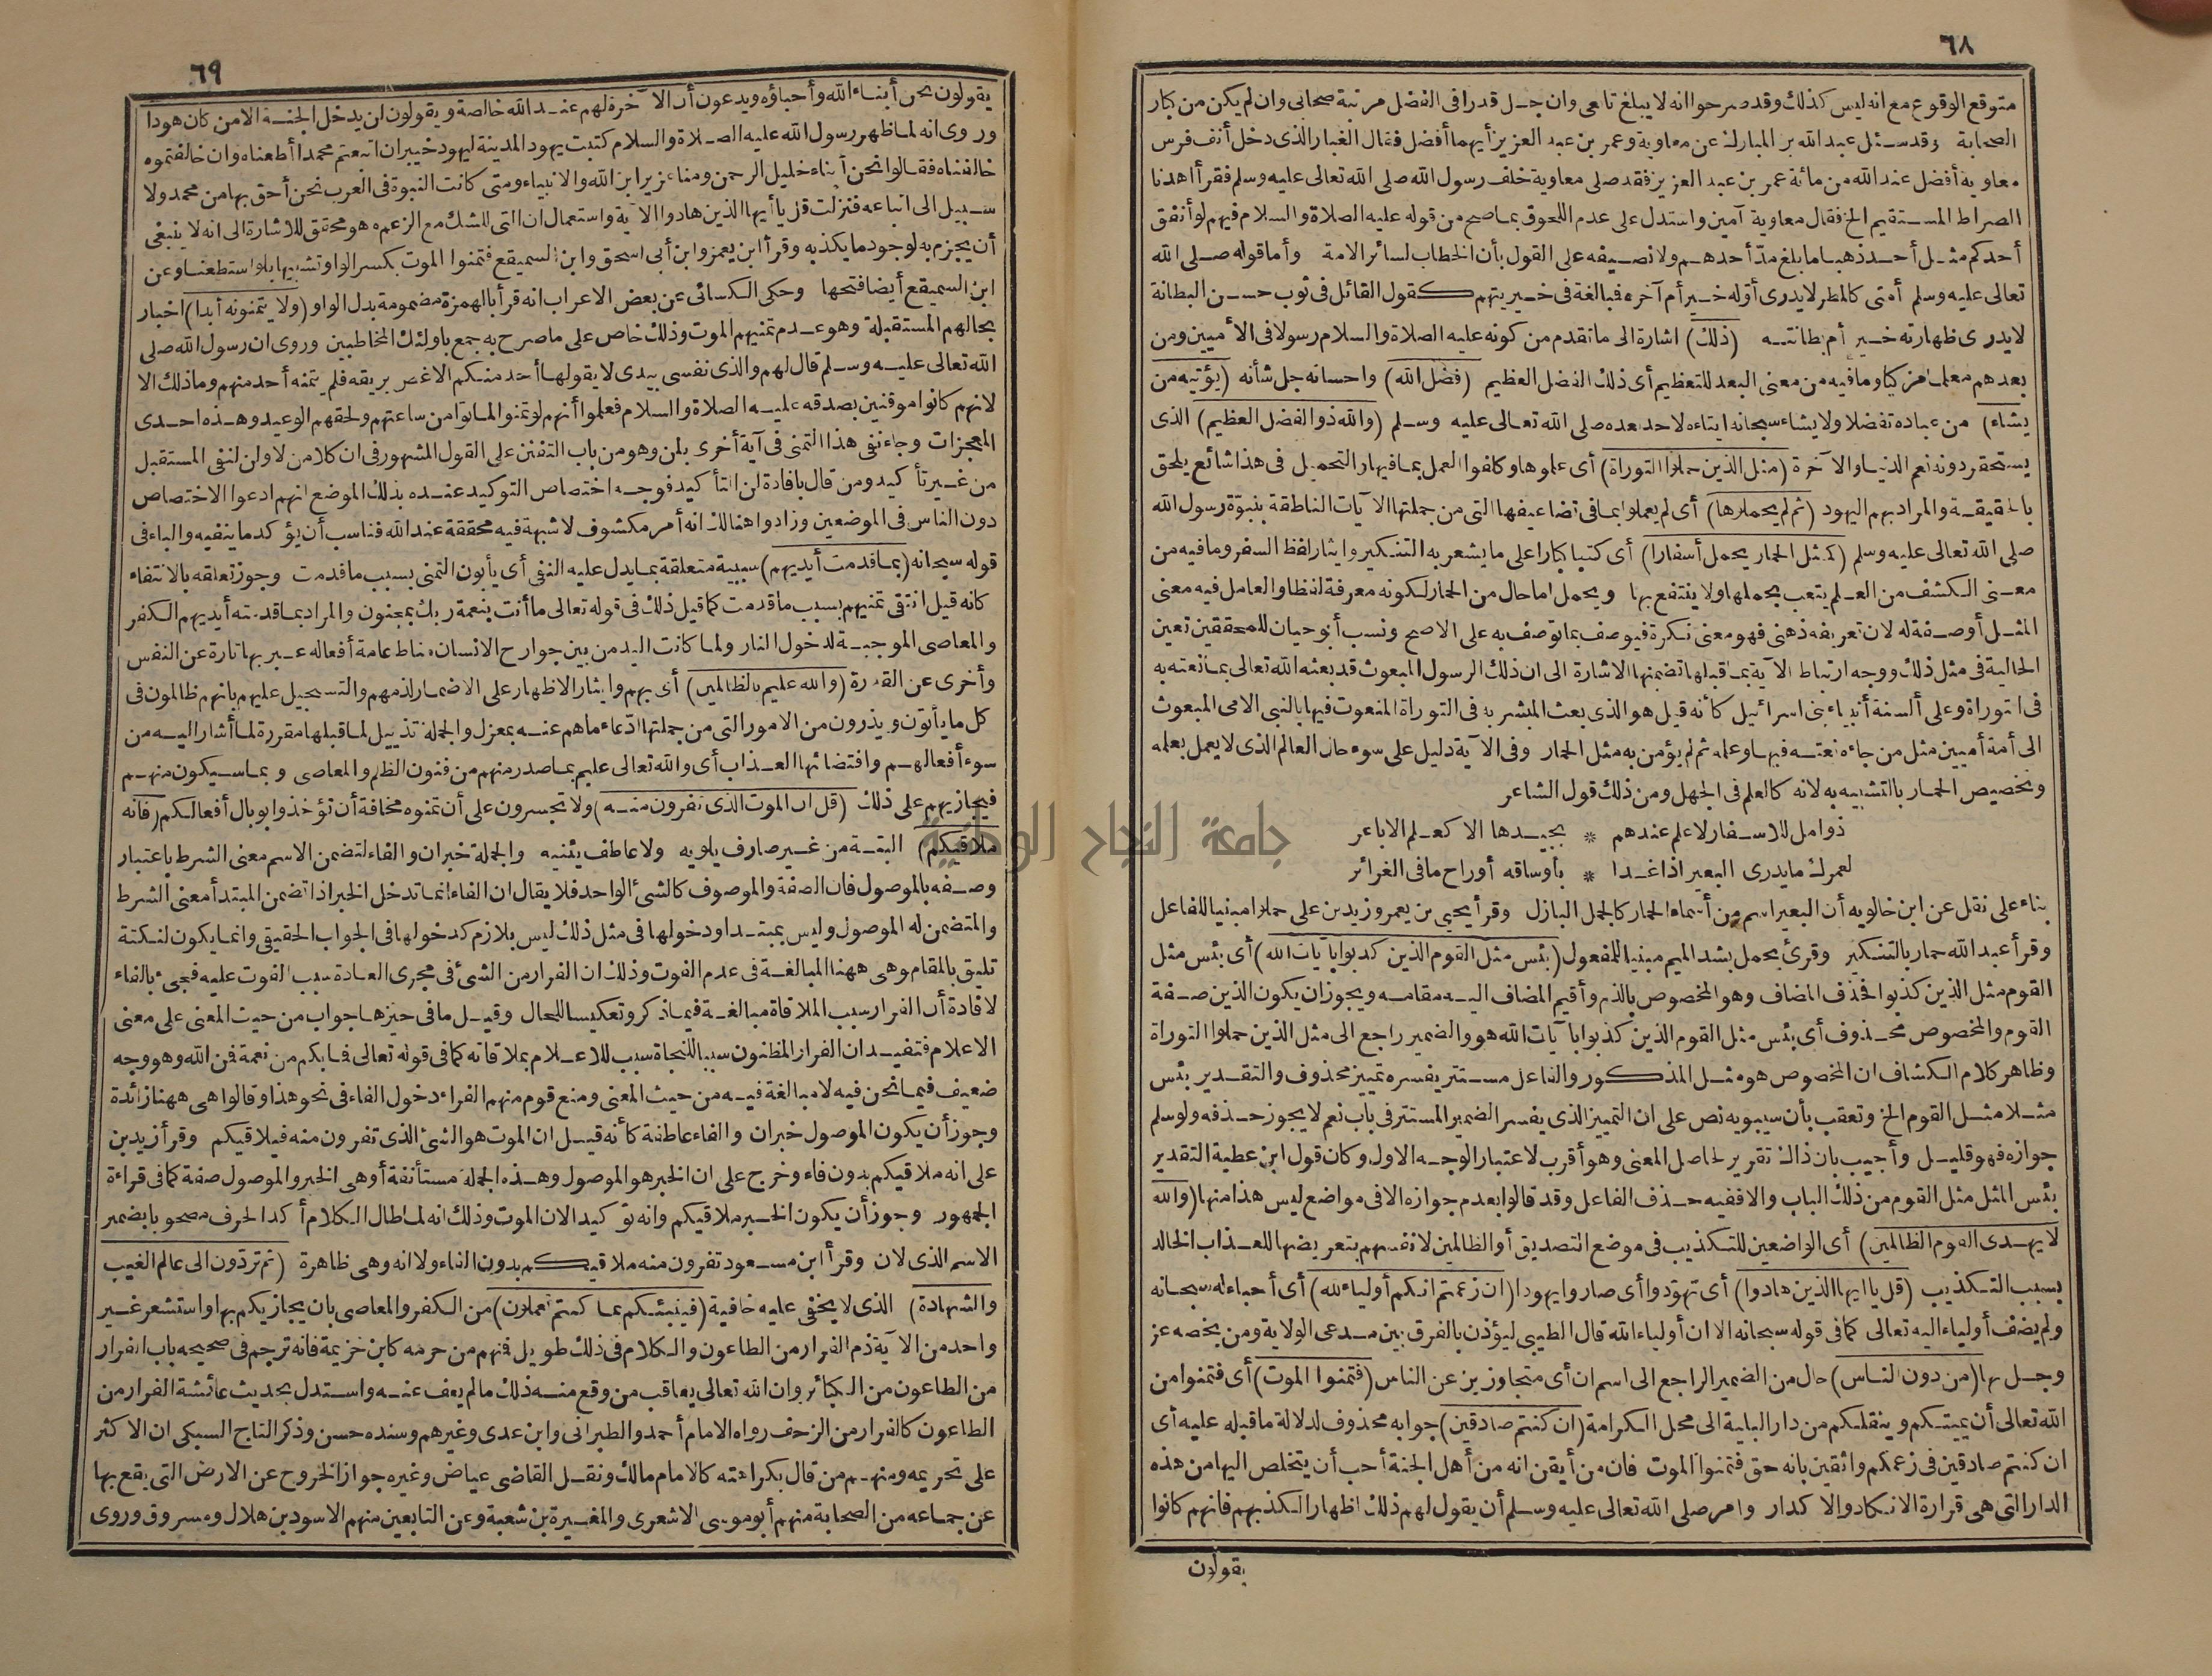 ٦٨
متوقع الوقوع مع انه ليس كذلك وقد صرحوا انه لا يبلغ تابعي وان جل قدرا في الفضل مرتبة صحابي وان لم يكن من كبار
الصحابة وقد سئل عبد الله بن المبارك عن معاوية وعمر بن عبد العزيز أيهما أفضل فقال الغبار الذي دخل أنف فرس
معاوية أفضل عند الله من مائة عمر بن عبد العزيز فقد صلى معاوية خلف رسول الله صلى الله تعالى عليه وسلم فقرأ اهدنا
الصراط المستقيم الخ فقال معاوية آمين واستدل على عدم اللحوق بما صح من قوله عليه الصلاة والسلام فيهم لو أنفق
أحدكم مثل أحد ذهبا ما بلغ مدّ أحدهم ولا نصيفه على القول بأن الخطاب لسائر الامة وأما قوله صلى الله
تعالى عليه وسلم أمتي كالمطر لا يدرى أوله خير أم آخره فبالغة في خيريتهم كقول القائل في ثوب حسن البطانة
لا يدرى ظهارته خير أم بطانته (ذلك) اشارة الى ما تقدم من كونه عليه الصلاة والسلام رسولا في الأميين ومن
بعدهم معلما مزكيا وما فيه من معنى البعد للتعظيم أي ذلك الفضل العظيم (فضل الله) واحسانه جل شأنه (يؤتيه من
يشاء) من عباده تفضلا ولا يشاء سبحانه ايتاءه لاحد بعده صلى الله تعالى عليه وسلم (والله ذو الفضل العظيم) الذي
يستحقر دونه نعم الدنيا والآخرة (مثل الذين حملوا التوراة) أي علموها وكلفوا العمل بما فيها والتحميل في هذا شائع يلحق
بالحقيقة والمراد بهم اليهود (ثم لم يحملوها) أي لم يعملوا بما في تضاعيفها التي من جملتها الآيات الناطقة بنبوّة رسول الله
صلى الله تعالى عليه وسلم (كمثل الحمار يحمل أسفارا) أي كتبا كبارا على ما يشعر به التنكير وايثار لفظ السفر وما فيه من
معنى الكشف من العلم يتعب بحملها ولا ينتفع بها ويحمل اما حال من الحمار لكونه معرفة لفظا والعامل فيه معنى
المثل أو صفة له لان تعريفه ذهني فهو معنى نكرة فيوصف بما توصف به على الاصح ونسب أبو حيان للمحققين تعين
الحالية في مثل ذلك ووجه ارتباط الآية بما قبلها تضمنها الاشارة الى ان ذلك الرسول المبعوث قد بعثه الله تعالى بما نعته به
في التوراة وعلى ألسنة أنبياء بني اسرائيل كأنه قيل هو الذي بعث المبشر به في التوراة المنعوت فيها بالنبي الامي المبعوث
الى أمة أميين مثل من جاءه نعته فيها وعلمه ثم لم يؤمن به مثل الحمار وفي الآية دليل على سوء حال العالم الذي لا يعمل بعلمه
وتخصيص الحمار بالتشبيه به لانه كالعلم في الجهل ومن ذلك قول الشاعر
ذوامل للاسفار لا علم عندهم * بجيدها الا كعلم الاباعر
لعمرك ما يدرى البعير اذا غدا * بأوساقه أو راح ما في الغرائر
بناء على نقل عن ابن خالويه أن البعير اسم من أسماء الحمار كالجمل البازل وقرأ يحيى بن يعمر وزيد بن علي حملوا مبنيا للفاعل
وقرأ عبد الله حمار بالتنكير وقرئ يحمل بشد الميم مبنيا للمفعول (بئس مثل القوم الذين كذبوا بآيات الله) أي بئس مثل
القوم مثل الذين كذبوا فحذف المضاف وهو المخصوص بالذم وأقيم المضاف اليه مقامه ويجوز ان يكون الذين صفة
القوم والمخصوص محذوف أي بئس مثل القوم الذين كذبوا بآيات الله هو والضمير راجع الى مثل الذين حملوا التوراة
وظاهر كلام الكشاف ان المخصوص هو مثل المذكور والفاعل مستتر يفسره تمييز محذوف والتقدير بئس
مثلا مثل القوم الخ وتعقب بأن سيبويه نص على ان التمييز الذي يفسر الضمير المستتر في باب نعم لا يجوز حذفه ولو سلم
جوازه فهو قليل وأجيب بان ذاك تقرير لحاصل المعنى وهو أقرب لاعتبار الوجه الاول وكان قول ابن عطية التقدير
بئس المثل مثل القوم من ذلك الباب والا ففيه حذف الفاعل وقد قالوا بعدم جوازه الا في مواضع ليس هذا منها (والله
لا يهدى القوم الظالمين) أي الواضعين للتكذيب في موضع التصديق أو الظالمين لانفسهم بتعريضها للعذاب الخالد
بسبب التكذيب (قل يا ايها الذين هادوا) أي تهوّدوا أي صاروا يهودا (ان زعمتم انكم أولياء لله) أي أحباء له سبحانه
ولم يضف أولياء اليه تعالى كما في قوله سبحانه الا ان أولياء الله قال الطيبي ليؤذن بالفرق بين مدعي الولاية ومن يخصه عز
وجل بها (من دون الناس) حال من الضمير الراجع الى اسم ان أي متجاوزين عن الناس (فتمنوا الموت) أي فتمنوا من
الله تعالى أن يميتكم وينقلكم من دار البلية الى محل الكرامة (ان كنتم صادقين) جوابه محذوف لدلالة ما قبله عليه أي
ان كنتم صادقين في زعمكم واثقين بانه حق فتمنوا الموت فان من أيقن انه من أهل الجنة أحب أن يتخلص اليها من هذه
الدار التي هي قرارة الانكاد والاكدار وامر صلى الله تعالى عليه وسلم أن يقول لهم ذلك اظهارا لكذبهم فانهم كانوا
يقولون
٦٩
يقولون نحن أبناء الله وأحباؤه ويدعون أن الآخرة لهم عند الله خالصة ويقولون لن يدخل الجنة الا من كان هودا
وروى انه لما ظهر رسول الله عليه الصلاة والسلام كتبت يهود المدينة ليهود خيبر ان اتبعتم محمدا أطعناه وان خالفتموه
خالفناه فقالوا نحن أبناء خليل الرحمن ومنا عزير ابن الله والانبياء ومتى كانت النبوة في العرب نحن أحق بها من محمد ولا
سبيل الى اتباعه فنزلت قل يا أيها الذين هادوا الآية واستعمال ان التي للشك مع الزعم وهو محقق للاشارة الى انه لا ينبغي
أن يجزم به لوجود ما يكذبه وقرأ ابن يعمر وابن أبي اسحق وابن السميقع فتمنوا الموت بكسر الواو تشبيها بلو استطعنا وعن
ابن السميقع أيضا فتحها وحكى الكسائي عن بعض الاعراب انه قرأ بالهمزة مضمومة بدل الواو (ولا يتمنونه أبدا) اخبار
بحالهم المستقبلة وهو عدم تمنيهم الموت وذلك خاص على ما صرح به جمع باولئك المخاطبين وروى ان رسول الله صلى
الله تعالى عليه وسلم قال لهم والذي نفسي بيدي لا يقولها أحد منكم الا غص بريقه فلم يتمنه أحد منهم وما ذلك الا
لانهم كانوا موقنين بصدقه عليه الصلاة والسلام فعلموا أنهم لو تمنوا لماتوا من ساعتهم ولحقهم الوعيد وهذه احدى
المعجزات وجاء نفي هذا التمني في آية أخرى بلن وهو من باب التفنن على القول المشهور في ان كلا من لا ولن لنفي المستقبل
من غير تأكيد ومن قال بافادة لن التأكيد فوجه اختصاص التوكيد عنده بذلك الموضع انهم ادعوا الاختصاص
دون الناس في الموضعين وزادوا هنالك انه أمر مكشوف لا شبهة فيه محققة عند الله فناسب أن يؤكد ما ينفيه والباء في
قوله سبحانه (بما قدمت أيديهم) سببية متعلقة بما يدل عليه النفي أي يأبون التمني بسبب ما قدمت وجوز تعلقه بالانتفاء
كانه قيل انتفى تمنيهم بسبب ما قدمت كما قيل ذلك في قوله تعالى ما أنت بنعمة ربك بمجنون والمراد بما قدمته أيديهم الكفر
والمعاصي الموجبة لدخول النار ولما كانت اليد من بين جوارح الانسان مناط عامة أفعاله عبر بها تارة عن النفس
وأخرى عن القدرة (والله عليم بالظالمين) أي بهم وايثار الاظهار على الاضمار لذمهم والتسجيل عليهم بانهم ظالمون في
كل ما يأتون ويذرون من الامور التي من جملتها ادّعاء ما هم عنه بمعزل والجملة تذييل لما قبلها مقررة لما أشار اليه من
سوء أفعالهم واقتضائها العذاب أي والله تعالى عليم بما صدر منهم من فنون الظلم والمعاصي وبما سيكون منهم
فيجازيهم على ذلك (قل ان الموت الذي تفرون منه) ولا تجسرون على أن تمنوه مخافة أن تؤخذوا بوبال أفعالكم (فانه
ملاقيكم) البتة من غير صارف يلويه ولا عاطف يثنيه والجملة خبر ان والفاء لتضمن الاسم معنى الشرط باعتبار
وصفه بالموصول فان الصفة والموصوف كالشئ الواحد فلا يقال ان الفاء انما تدخل الخبر اذا تضمن المبتدأ معنى الشرط
والمتضمن له الموصول وليس بمبتدا ودخولها في مثل ذلك ليس بلازم كدخولها في الجواب الحقيقي وانما يكون لنكتة
تليق بالمقام وهي ههنا المبالغة في عدم الفوت وذلك ان الفرار من الشئ في مجرى العادة سبب الفوت عليه فجيء بالفاء
لافادة أن الفرار سبب الملاقاة مبالغة فيما ذكر وتعكيسا للحال وقيل ما في حيزها جواب من حيث المعنى على معنى
الاعلام فتفيد ان الفرار المظنون سببا للنجاة سبب للاعلام بملاقاته كما في قوله تعالى فما بكم من نعمة فمن الله وهو وجه
ضعيف فيما نحن فيه لا مبالغة فيه من حيث المعنى ومنع قوم منهم الفراء دخول الفاء في نحو هذا وقالوا هي ههنا زائدة
وجوز أن يكون الموصول خبر ان والفاء عاطفة كأنه قيل ان الموت هو الشئ الذي تفرون منه فيلاقيكم وقرأ زيد بن
على انه ملاقيكم بدون فاء وخرج على ان الخبر هو الموصول وهذه الجملة مستأنفة أو هي الخبر والموصول صفة كما في قراءة
الجمهور وجوز أن يكون الخبر ملاقيكم وانه توكيد الان الموت وذلك انه لما طال الكلام أكد الحرف مصحوبا بضمير
الاسم الذي لان وقرأ ابن مسعود تفرون منه ملاقيكم بدون الفاء ولا انه وهي ظاهرة (ثم تردّون الى عالم الغيب
والشهادة) الذي لا يخفى عليه خافية (فينبئكم بما كنتم تعملون) من الكفر والمعاصي بان يجازيكم بها واستشعر غير
واحد من الآية ذم الفرار من الطاعون والكلام في ذلك طويل فمنهم من حرمه كابن خزيمة فانه ترجم في صحيحه باب الفرار
من الطاعون من الكبائر وان الله تعالى يعاقب من وقع منه ذلك ما لم يعف عنه واستدل بحديث عائشة الفرار من
الطاعون كالفرار من الزحف رواه الامام أحمد والطبراني وابن عدي وغيرهم وسنده حسن وذكر التاج السبكي ان الاكثر
على تحريمه ومنهم من قال بكراهته كالامام مالك ونقل القاضي عياض وغيره جواز الخروج عن الارض التي يقع بها
عن جماعه من الصحابة منهم أبو موسى الاشعري والمغيرة بن شعبة وعن التابعين منهم الاسود بن هلال ومسروق وروى
جامعة النجاح الوطنية